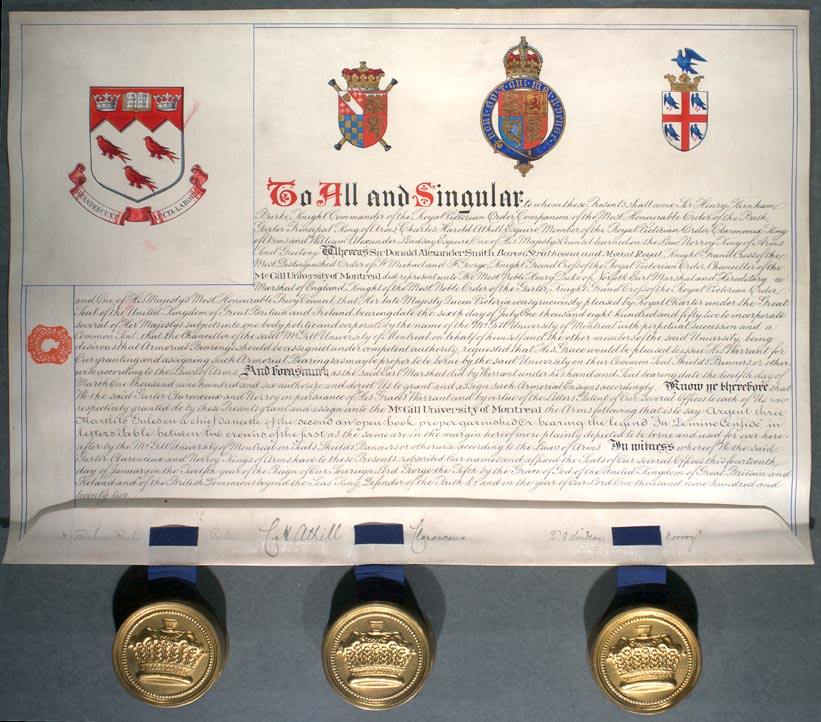 GRANDESCUNT AUCTA LABORE
HONI SOIT QUI MAL Y PENSE
To All and Singular to whom these Presents shall come Sir Henry Farnham
Burke Knight Commander of the Royal Victorian Order Companion of the Most Honourable Order of the Bath
Garter Principal King of Arms, Charles Harold Athill Esquire Member of the Royal Victorian Order Clarenceux King
of Arms and William Alexander Lindsay Esquire, One of His Majesty's Counsel learned in the Law Norroy King of Arms
Send Greeting Whereas Sir Donald Alexander Smith, Baron Strathcona and Mount Royal, Knight Grand Cross of the
Most Distinguished Order of St Michael and St George, Knight Grand Cross of the Royal Victorian Order, Chancellor of the
McGill University of Montreal did represent unto The Most Noble Henry Duke of Norfolk Earl Marshal and Hereditary
Marshal of England, Knight of the Most Noble Order of the Garter, Knight Grand Cross of the Royal Victorian Order
and One of His Majesty's Most Honourable Privy Council, that Her late Majesty Queen Victoria was graciously pleased by Royal Charter under the Great
Seal of the United Kingdom of Great Britain and Ireland bearing date the sixth day of July One thousand eight hundred and fifty two to incorporate
several of Her Majesty's subjects into one body politic and corporate by the name of the McGill University of Montreal with perpetual succession and a
Common Seal That the Chancellor of the said McGill University of Montreal on behalf of himself and the other members of the said University being
desirous that Armorial Bearings should be assigned under competent authority requested that His Grace would be pleased to issue His Warrant for
Our granting and assigning such Armorial Bearings as may be proper to be borne by the said University on their Common Seal Shields Banners or other-
wise according to the Laws of Arms And forasmuch as the said Earl Marshal did by Warrant under his hand and Seal bearing date the twelfth day of
March One thousand nine hundred and six authorize and direct Us to grant and assign such Armorial Ensigns accordingly Know ye therefore that
We the said Garter Clarenceux and Norroy in pursuance of His Grace's Warrant and by virtue of the Letters Patent of Our several Offices to each of Us
respectively granted do by these Presents grant and assign unto the McGill University of Montreal the Arms following that is to say Argent three
Martlets Gules on a chief dancette of the second an open book proper garnished Or bearing the legend In Domino Confido in
letters Sable between two crowns of the first, as the same are in the margin hereof more plainly depicted to be borne and used for ever here-
after by the McGill University of Montreal on Seals Shields Banners or otherwise according to the Laws of Arms In witness whereof We the said
Garter Clarenceux and Norroy Kings of Arms have to these Presents subscribed Our names and affixed the Seals of Our several Offices this fourteenth
day of January in the Twelfth year of the Reign of Our Sovereign Lord George the Fifth by the Grace of God of the United Kingdom of Great Britain and
Ireland and of the British Dominions beyond the Seas King Defender of the Faith &c and in the year of Our Lord One thousand nine hundred and
twenty two.
H Farnham Burke Garter C H Athill Clarenceux W A Lindsay Norroy